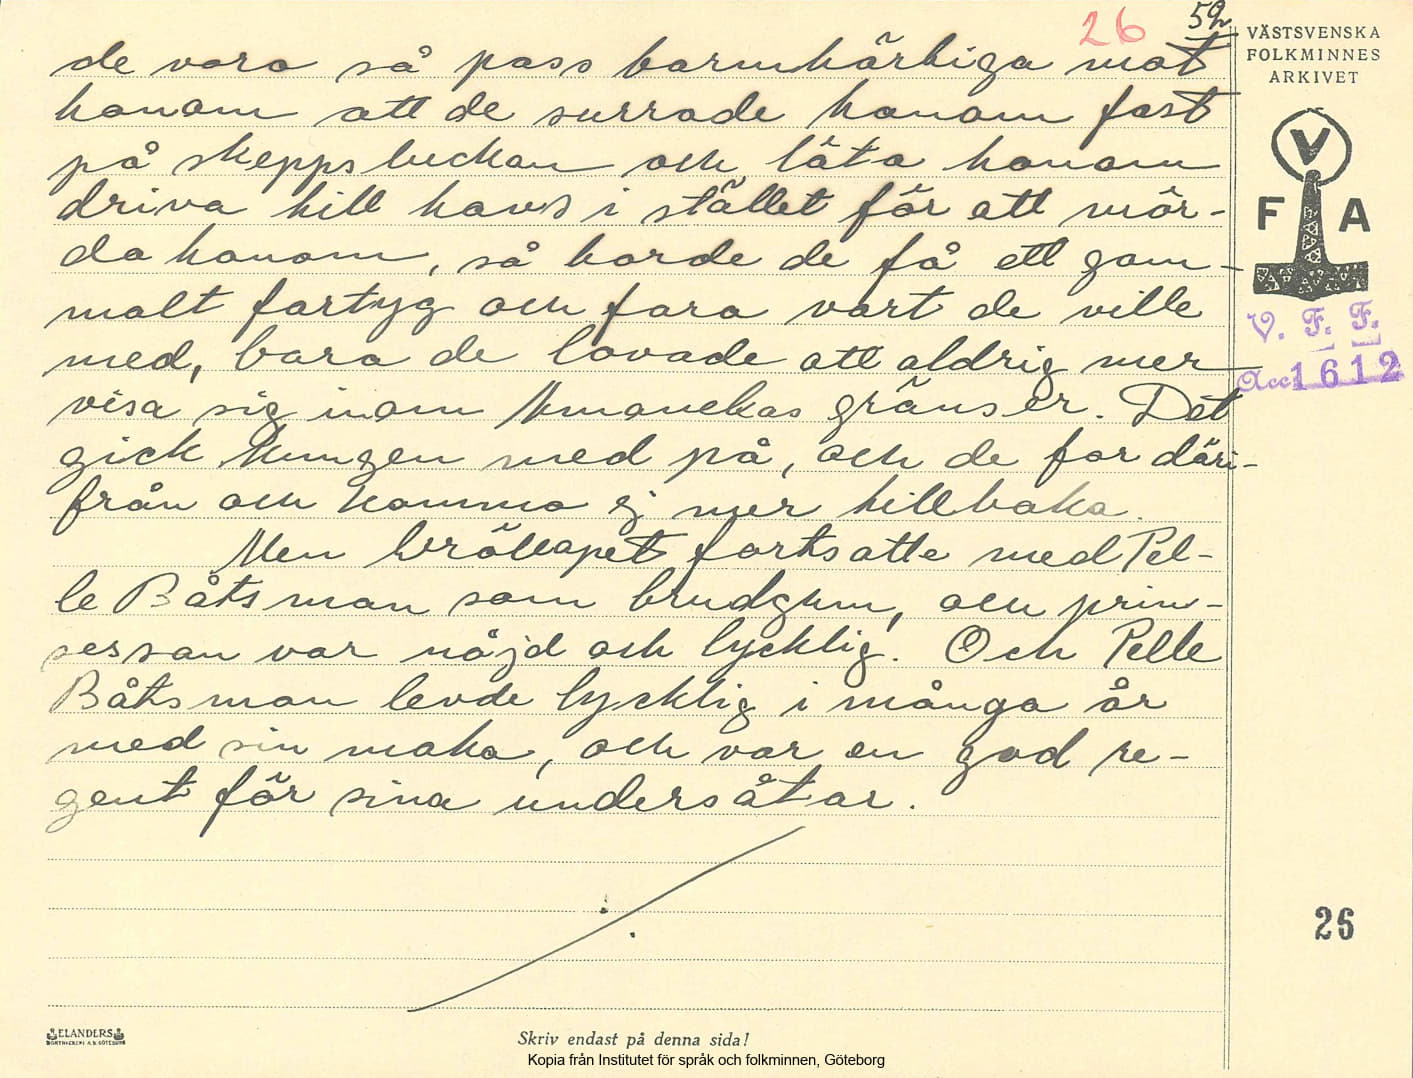 26 52
VÄSTSVENSKA
FOLKMINNES
ARKIVET
V
F A
V. F. F.
Acc 1612
de voro så pass barmhärtiga mot
honom att de surrade honom fast
på skeppsluckan och läta honom
driva till havs i stället för att mör-
da honom, så borde de få ett gam-
malt fartyg och fara vart de ville
med, bara de lovade att aldrig mer
visa sig inom Amanekas gränser. Det
gick kungen med på, och de for däri-
från och kommo ej mer tillbaka.
Men bröllopet fortsatte med Pel-
le Båtsman som brudgum, och prin-
sessan var nöjd och lycklig. Och Pelle
Båtsman levde lycklig i många år
med sin maka, och var en god re-
gent för sina undersåtar.
26
ELANDERS
Skriv endast på denna sida!
Kopia från Institutet för språk och folkminnen, Göteborg